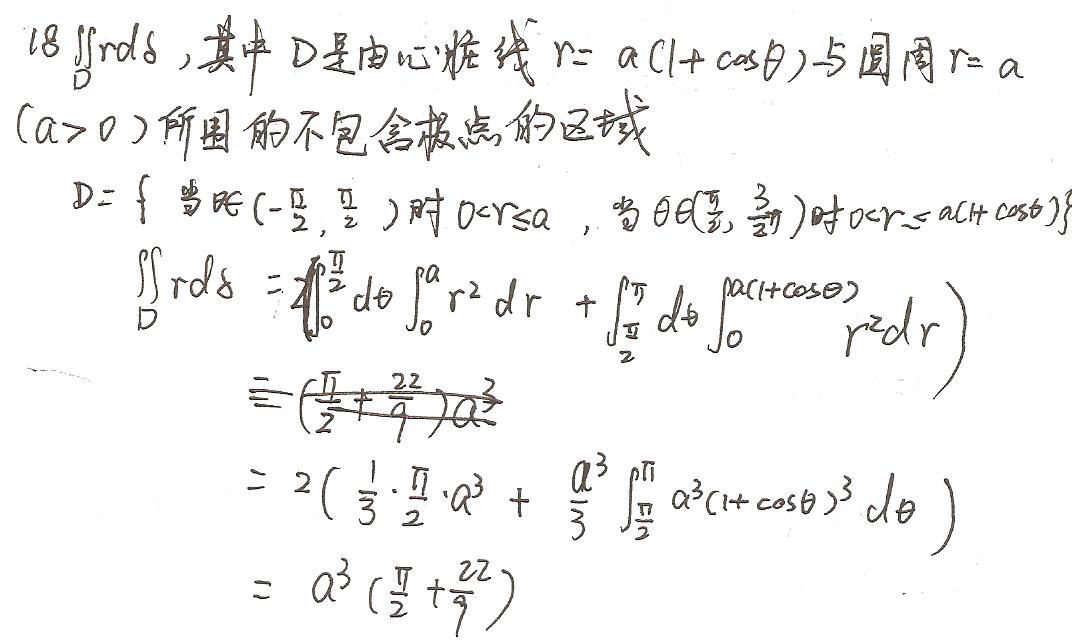 18 ∬_D rdδ , 其中 D是由心脏线 r= a(1+cosθ)与圆周 r=a
(a>0)所围的不包含极点的区域
D={ 当θ∈(-π/2, π/2)时 0<r≤a , 当θ∈(π/2, 3/2π)时 0<r≤a(1+cosθ)}
∬_D rdδ = 2(∫_0^{π/2} dθ ∫_0^a r² dr + ∫_{π/2}^π dθ ∫_0^{a(1+cosθ)} r²dr)
= (π/2 + 22/9)a³
= 2( 1/3 · π/2 · a³ + a³/3 ∫_{π/2}^π a³(1+cosθ)³ dθ )
= a³ (π/2 + 22/9)